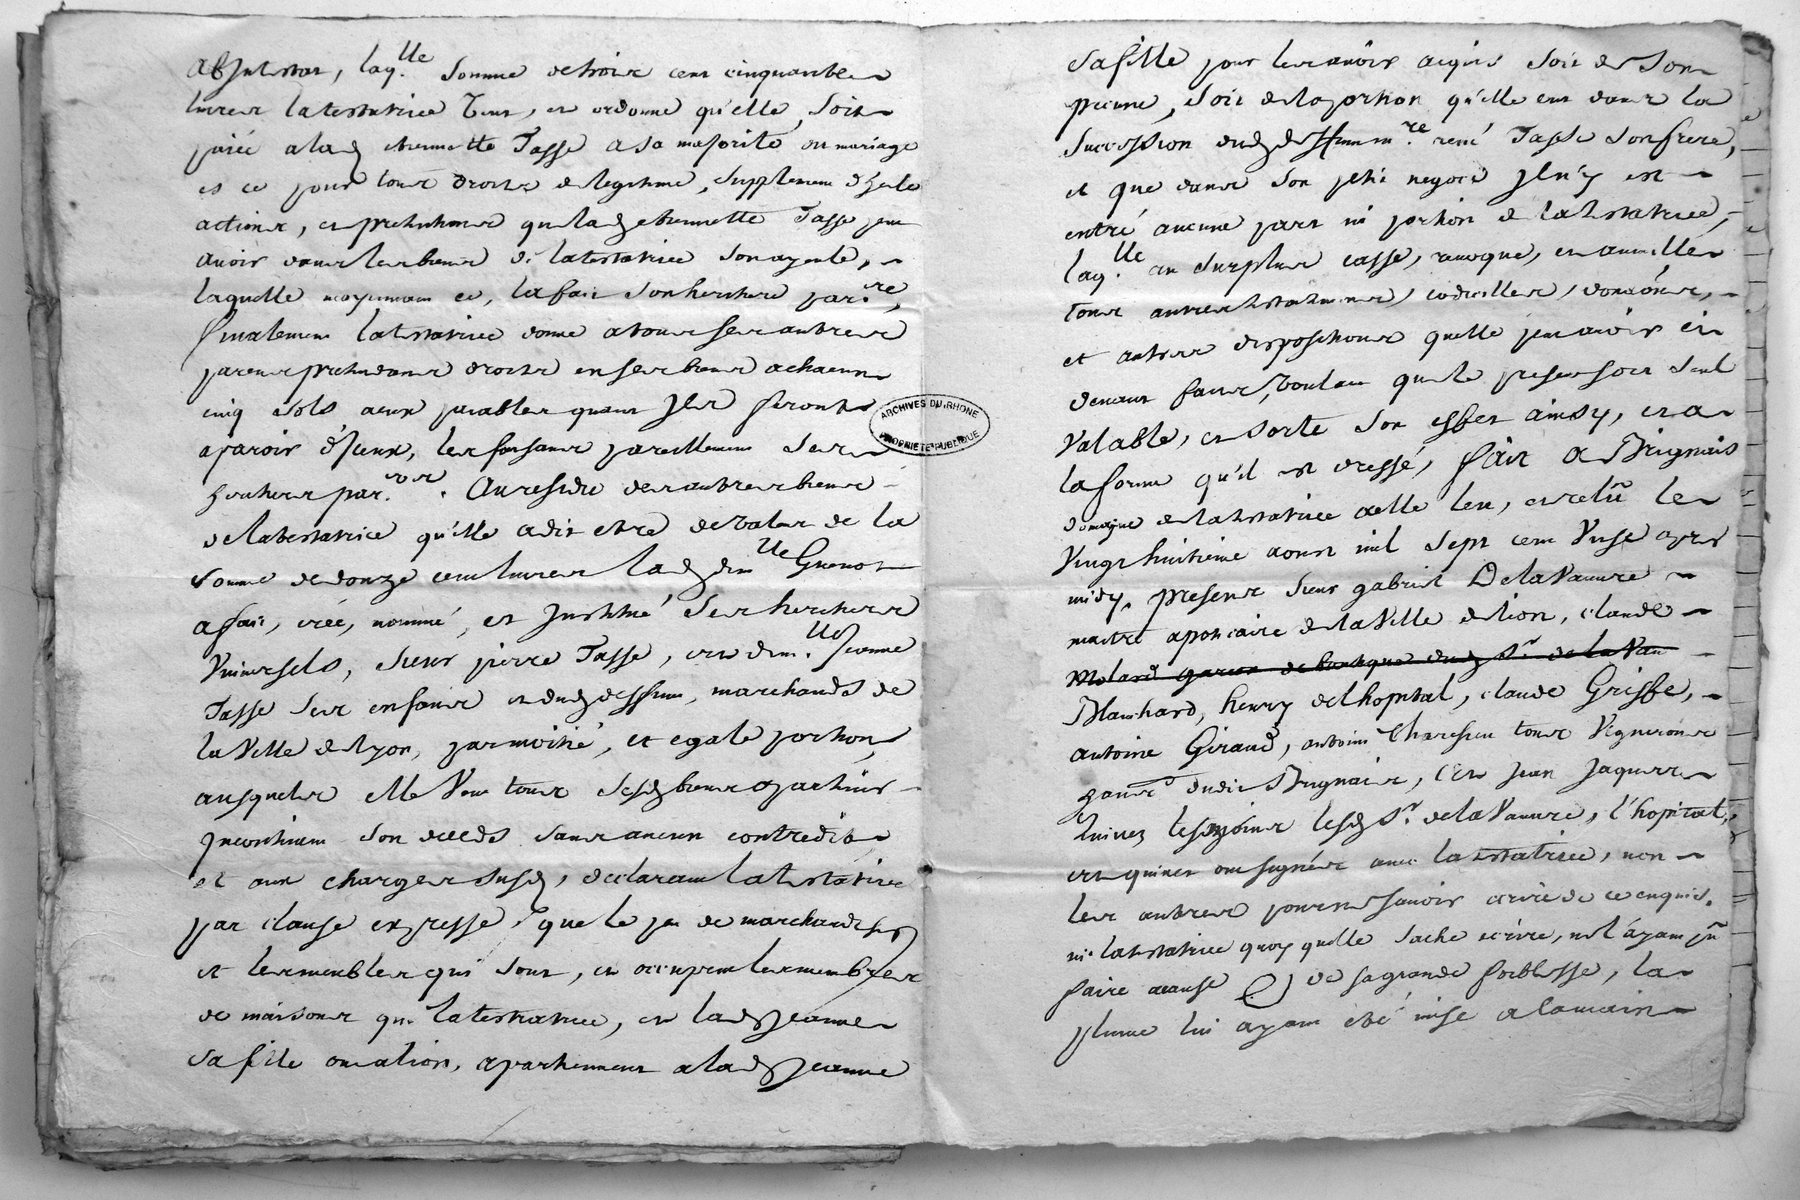 abintestat, laq.lle somme de trois cent cinquante
livres la testatrice veut, et ordonne qu'elle soit
paiée a lad etiennette Tasse a sa majorité ou mariage
et ce pour tous droits de legitime, supplement d'icelle
actions, et pretentions que lad etiennette Tasse peut
avoir dans les biens de la testatrice son ayeule,
laquelle moyennant ce, la fait son heritiere par.re,
finalement la testatrice donne a tous ses autres
parens pretendans droits en ses biens a chacun
cinq sols aeux paiables quant ils seront
aparoir d'iceux, les faisant pareillement ses
heritiers par.ers. Au residu des autres biens
de la testatrice qu'elle a dit etre de valeur de la
somme de douze cent livres lad dm.lle Guenot
a fait, créé, nommé, et institué ses heritiers
universels, sieur pierre Tasse, et dm.lle Jeanne
Tasse ses enfans et dud deffunt, marchands de
la ville de lyon, par moitié, et egale portion,
ausquels elle veut tous sesd biens apartenir
incontinent son deceds sans aucun contredit
et aux charges susd, declarant la testatrice
par clause expresse, que le peu de marchandises
et les meubles qui sont, et occupent les membres
de maisons que la testatrice, et lad Jeanne
sa fille ont a lion, apartiennent a lad Jeanne
sa fille pour les avoir acquis soit de son
pecune, soit de la portion qu'elle eut dans la
succession dud rené Tasse son frere,
et que dans son petit negoce il n'y est
entré aucune part ni portion de la testatrice,
laq.lle au surplus casse, revoque, et annulle
tous autres testamens, codicilles, donaons,
et autres dispositions quelle peut avoir cy
devant faits, voulant que le present soit seul
valable, et sorte son effet ainsy, et a
la forme qu'il est dressé, fait a Brignais
domaine de la testatrice a elle leu, et releû le
vingt huitieme aoust mil sept cent unse apres
midy, present sieur gabriel Delavaure
maitre apoticaire de la ville de lion, claude
Molard garcon de boutique dud Sr de la Vau
Blanchard, henry de lhopital, claude Griffe,
antoine Giraud, antoine tous vignerons
dudit Brignais, et Jean Jaques
lesd Sr delavaure, l'hopital,
et quinet ont signés avec la testatrice, non
les autres pour ne savoir ecrire de ce enquis,
ni la testatrice quoy quelle sache ecrire, ne l'ayant pû
faire acause de sa grande foiblesse, la
plume lui ayant eté mise a la main
ARCHIVES DU RHONE
PROPRIETE PUBLIQUE